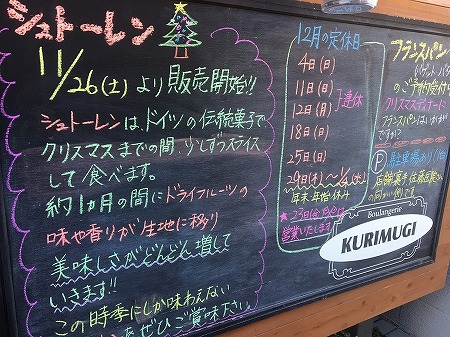 シュトーレン
11/26(土)より販売開始!!
シュトーレンは、ドイツの伝統菓子で、
クリスマスまでの間、少しずつスライス
して食べます。
約1カ月の間にドライフルーツの
味や香りが生地に移り
美味しさがどんどん増して
いきます!!
この時季にしか味わえない
ぜひご賞味下さい
12月の定休日
4日(日)
11日(日)
12日(月) 連休
18日(日)
25日(日)
29日(木)〜1/4(水)
年末年始休み
営業いたします
フランスパン
のご予約受付
クリスマスディナーに
フランスパンはいかが
ですか?
P 駐車場あり
Boulangerie
KURIMUGI